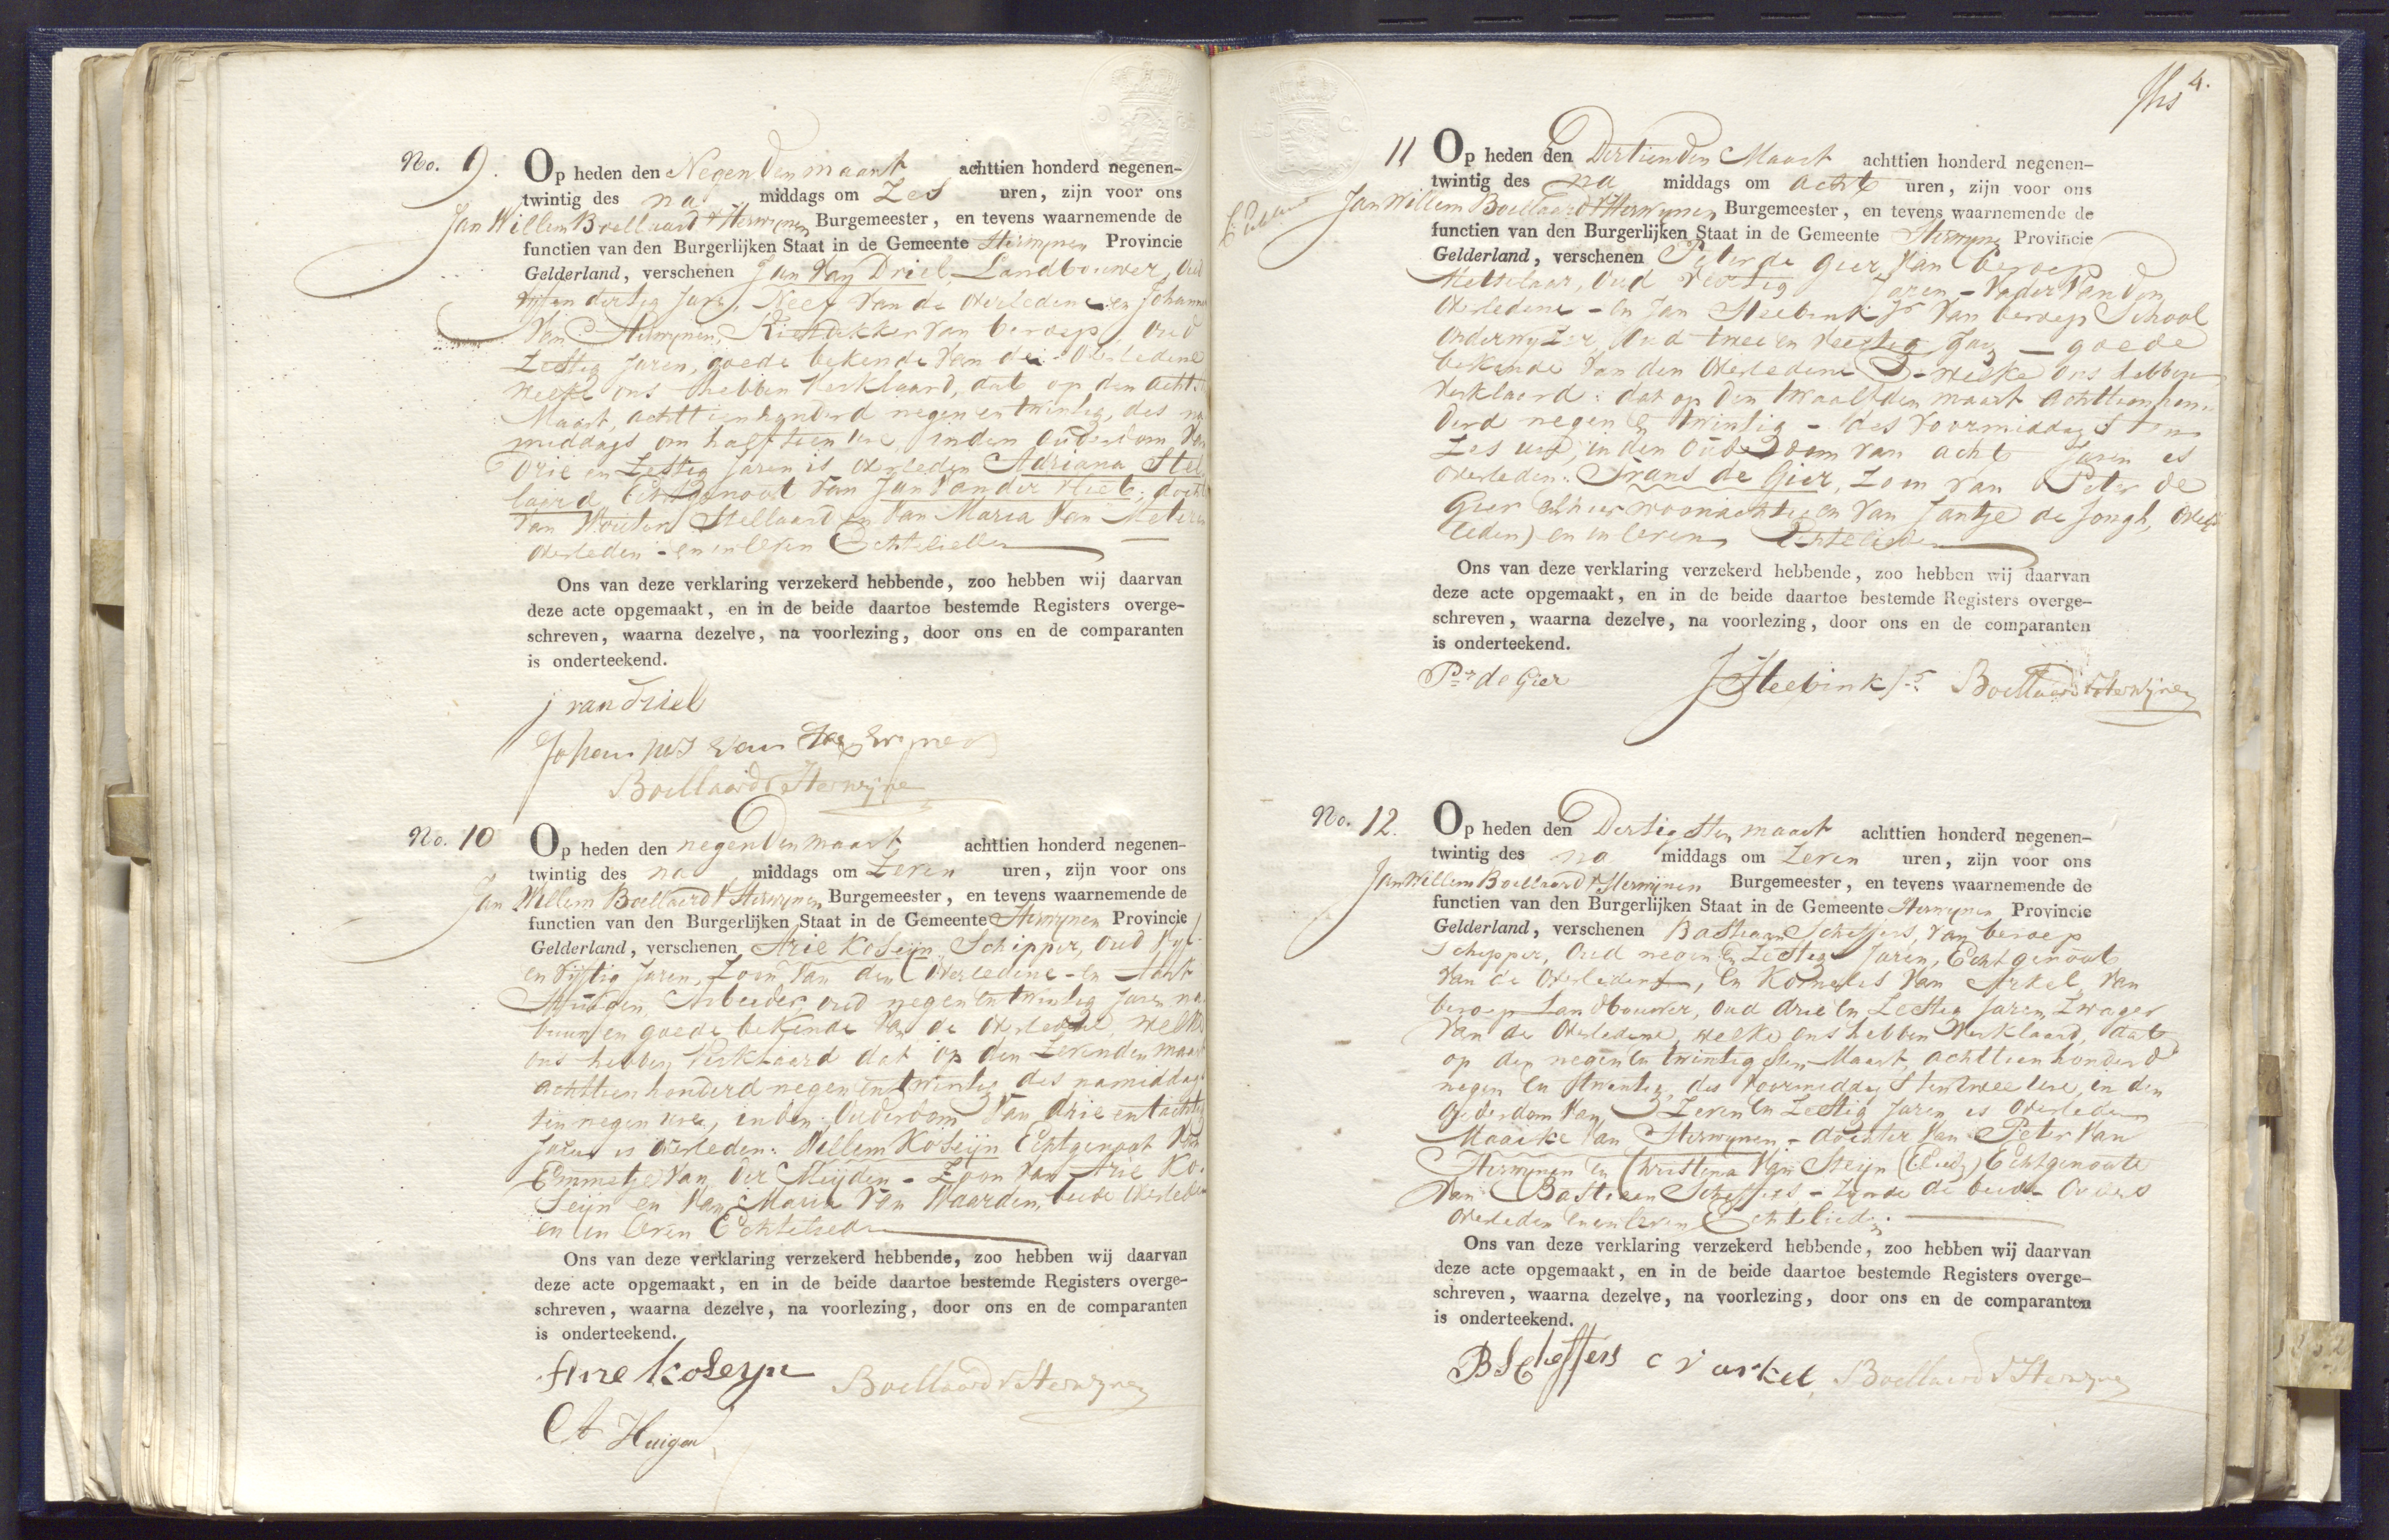 No. 9. Op heden den Negenden maart achttien honderd negenen-
twintig des na middags om Zes uren, zijn voor ons
Jan Willem Boellaard v Herwynen Burgemeester, en tevens waarnemende de
functien van den Burgerlijken Staat in de Gemeente Herwynen Provincie
Gelderland, verschenen Jan van Driel, Landbouwer, Oud
en dertig Jare, Neef van de Overledene en Johann
van Herwynen, Rietdekker van beroep, oud
Zestig Jaren, goede bekende van de Overledene
welke ons hebben verklaard, dat op den acht
Maart, achttienhonderd negen en twintig, des na
middags om half tien ure, in den Ouderdom van
drie en Zestig Jaren is overleden Adriana Stel
laard, Echtgenoot van Jan van der Vliet, docht
van Wouter Stellaard en van Maria van Meteren
overleden - en in leven Echtelieden
Ons van deze verklaring verzekerd hebbende, zoo hebben wij daarvan
deze acte opgemaakt, en in de beide daartoe bestemde Registers overge-
schreven, waarna dezelve, na voorlezing, door ons en de comparanten
is onderteekend.
j van driel
Johannes van Herwynen
Boellaard v Herwyne
No. 10 Op heden den negenden maart achttien honderd negenen-
twintig des na middags om Zeven uren, zijn voor ons
Jan Willem Boellaard v Herwynen Burgemeester, en tevens waarnemende de
functien van den Burgerlijken Staat in de Gemeente Herwynen Provincie
Gelderland, verschenen Arie Koseijn, Schipper, Oud Vyf-
en Vyftig Jaren, Zoon van den Overledene - En
Arbeider, oud negen en twintig Jaren na
buur en goede bekende van de Overledene welke
ons hebben verklaard dat op den Zevenden maart
achttien honderd negen en twintig des namiddags
ten negen ure, in den Ouderdom van drie en tachtig
Jaren is overleden: Willem Koseijn Echtgenoot van
Emmetje van der Meijden - Zoon van Arie Ko-
seijn en van Maria van Waarden, beide overleden
en in leven Echtelieden
Ons van deze verklaring verzekerd hebbende, zoo hebben wij daarvan
deze acte opgemaakt, en in de beide daartoe bestemde Registers overge-
schreven, waarna dezelve, na voorlezing, door ons en de comparanten
is onderteekend.
Arie koseyn Boellaard v Herwynen
A Huigen
4.
11 Op heden den Dertienden Maart achttien honderd negenen-
twintig des na middags om acht uren, zijn voor ons
Jan Willem Boellaard v Herwynen Burgemeester, en tevens waarnemende de
functien van den Burgerlijken Staat in de Gemeente Herwynen Provincie
Gelderland, verschenen Peter de Gier, van beroep
Metselaar, Oud veertig Jaren - Vader van den
Overledene - en Jan Steebink Jr van beroep School
onderwyzer, Oud twee en veertig Jaren - goede
bekende van den Overledene - welke ons hebben
verklaard: dat op den twaalfden maart achttienhon-
derd negen en twintig - des voormiddags ten
Zes ure, in den Ouderdom van acht Jaren is
overleden: Frans de Gier, Zoon van Peter de
Gier alhier woonachtig en van Jantje de Jongh, over
leden) en in leven Echtelieden
Ons van deze verklaring verzekerd hebbende, zoo hebben wij daarvan
deze acte opgemaakt, en in de beide daartoe bestemde Registers overge-
schreven, waarna dezelve, na voorlezing, door ons en de comparanten
is onderteekend.
Pr de Gier J Steebink Jr Boellaard v Herwijnen
No. 12. Op heden den Dertigsten maart achttien honderd negenen-
twintig des na middags om Zeven uren, zijn voor ons
Jan Willem Boellaard v Herwijnen Burgemeester, en tevens waarnemende de
functien van den Burgerlijken Staat in de Gemeente Herwynen Provincie
Gelderland, verschenen Bastiaan Scheffers, van beroep
Schipper, Oud negen en Zestig Jaren, Echtgenoot
van de Overledene, en Kornelis van Arkel van
beroep Landbouwer, Oud drie en Zestig Jaren, Zwager
van de Overledene, welke ons hebben verklaard, dat
op den negen en twintigsten Maart, achttien honderd
negen en twintig, des voormiddags ten twee ure, in den
Ouderdom van Zeven en Zestig Jaren is overleden
Maaike van Herwynen - dochter van Peter van
Herwynen en Christina van Steijn Echtgenoote
van Bastiaan Scheffers - Zynde de beide Ouders
overleden en in leven Echtelieden.
Ons van deze verklaring verzekerd hebbende, zoo hebben wij daarvan
deze acte opgemaakt, en in de beide daartoe bestemde Registers overge-
schreven, waarna dezelve, na voorlezing, door ons en de comparanten
is onderteekend.
B Scheffers c v arkel Boellaard v Herwyne